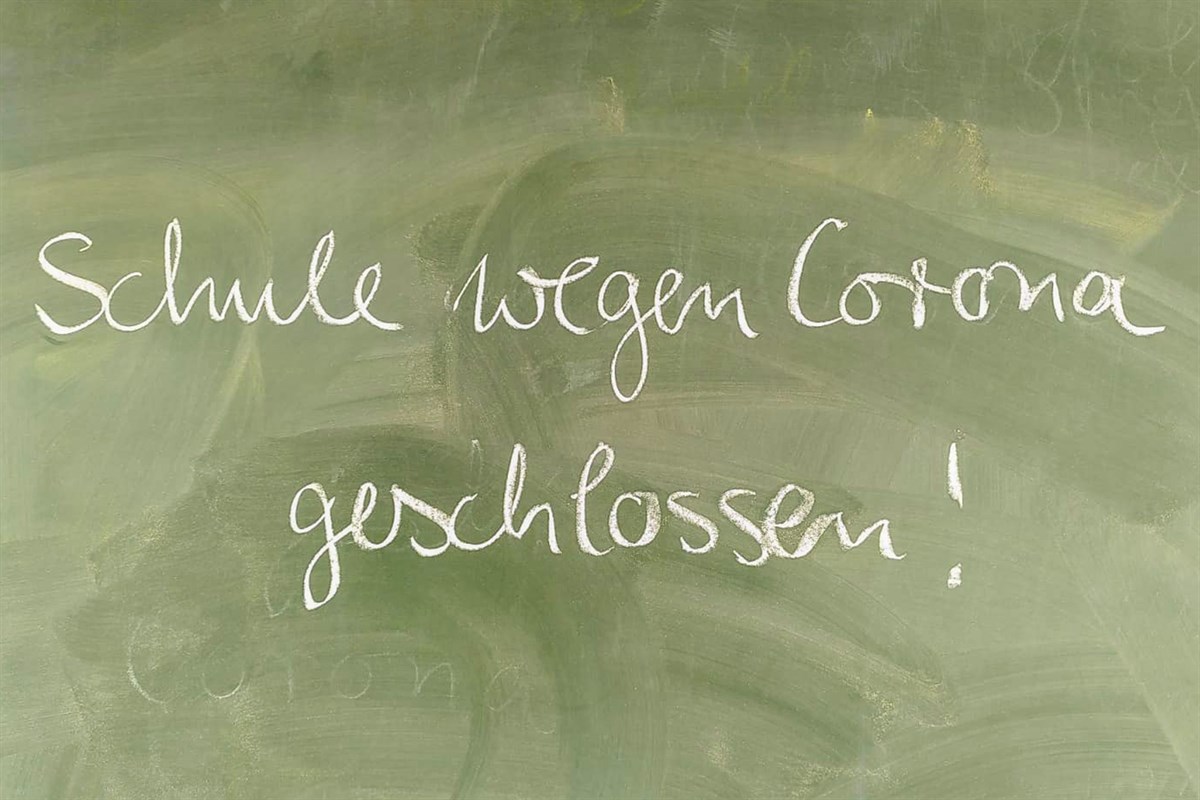 Schule wegen Corona
geschlossen!
Corona